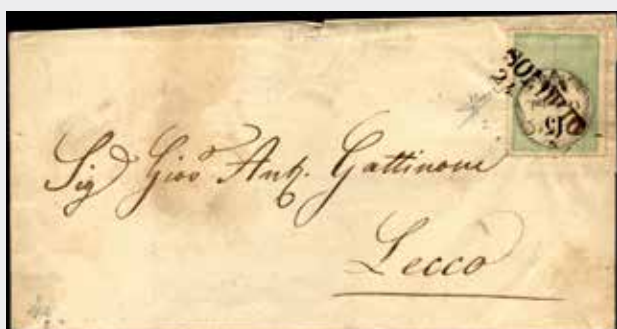 SONDRIO
15
Sig Gios Ant. Gattinoni
Lecco